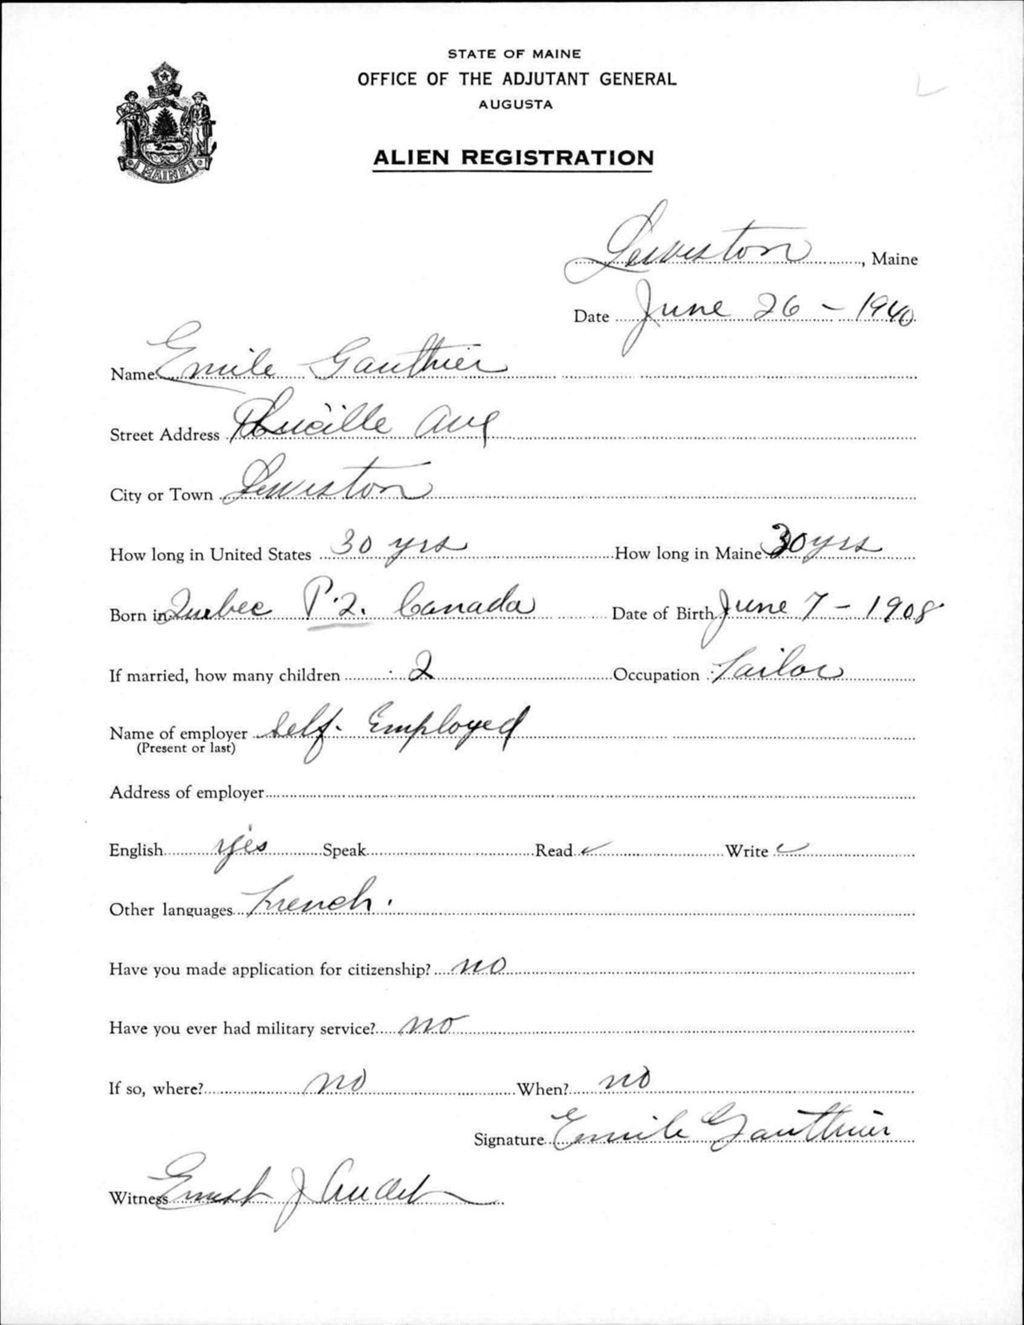 STATE OF MAINE
OFFICE OF THE ADJUTANT GENERAL
AUGUSTA
ALIEN REGISTRATION
MAINE
Lewiston, Maine
Date June 26 - 1940
Name Emile Gauthier
Street Address Lucille Ave
City or Town Lewiston
How long in United States 30 yrs How long in Maine 30 yrs
Born in Quebec P.Q. Canada Date of Birth June 7 - 1908
If married, how many children 2 Occupation Tailor
Name of employer Self-Employed
(Present or last)
Address of employer
English yes Speak Read ✓ Write ✓
Other languages French.
Have you made application for citizenship? no
Have you ever had military service? no
If so, where? no When? no
Signature Emile Gauthier
Witness Ernest J Audet